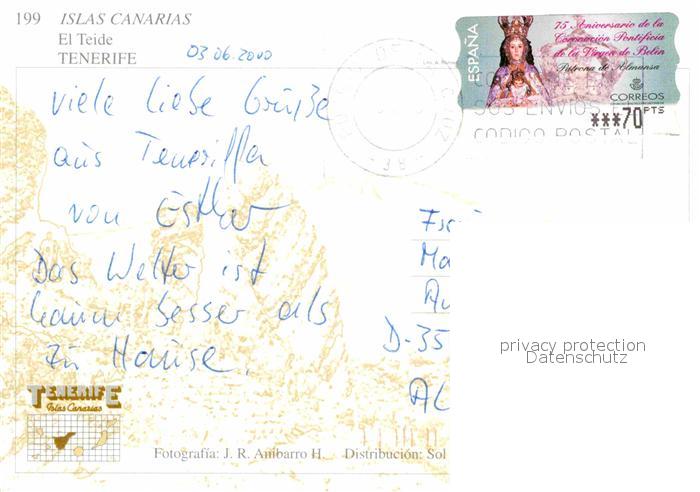 199 ISLAS CANARIAS
El Teide
TENERIFE
03 06.2000
Viele liebe Grüße
aus Teneriffa
von Esther
Das Wetter ist
kaum besser als
zu Hause.
ESPAÑA
75 Aniversario de la
Coronación Pontificia
de la Virgen de Belén
Patrona de Almansa
CORREOS
***70 PTS
SUS ENVIOS
CODIGO POSTAL
38
Ma
D-35
AL
privacy protection
Datenschutz
TENERIFE
Islas Canarias
Fotografía: J. R. Anibarro H. Distribución: Sol